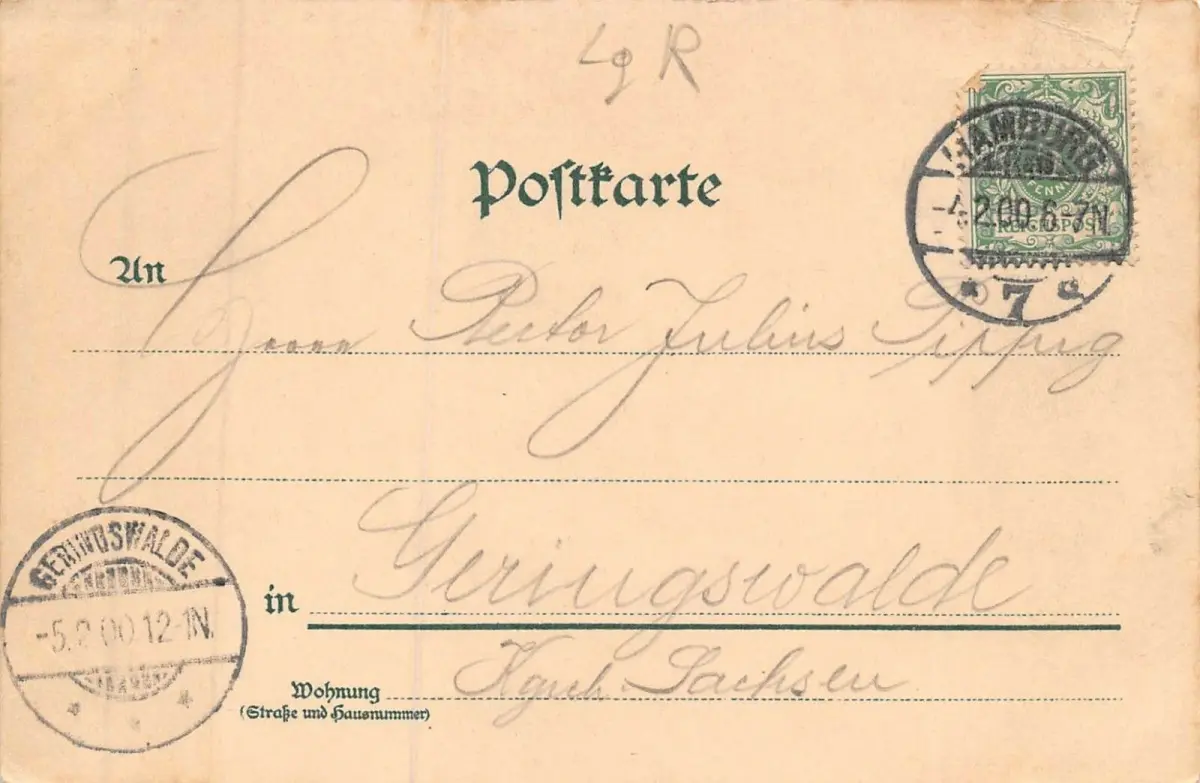 Lg R
Postkarte
PFENNIG
REICHSPOST
HAMBURG
-4.2.00.6-7N.
* 7 d
An
Herrn Rector Julius Sippig
GERINGSWALDE
-5.2.00.12-1N.
in Geringswalde
Wohnung Kgrch. Sachsen
(Straße und Hausnummer)